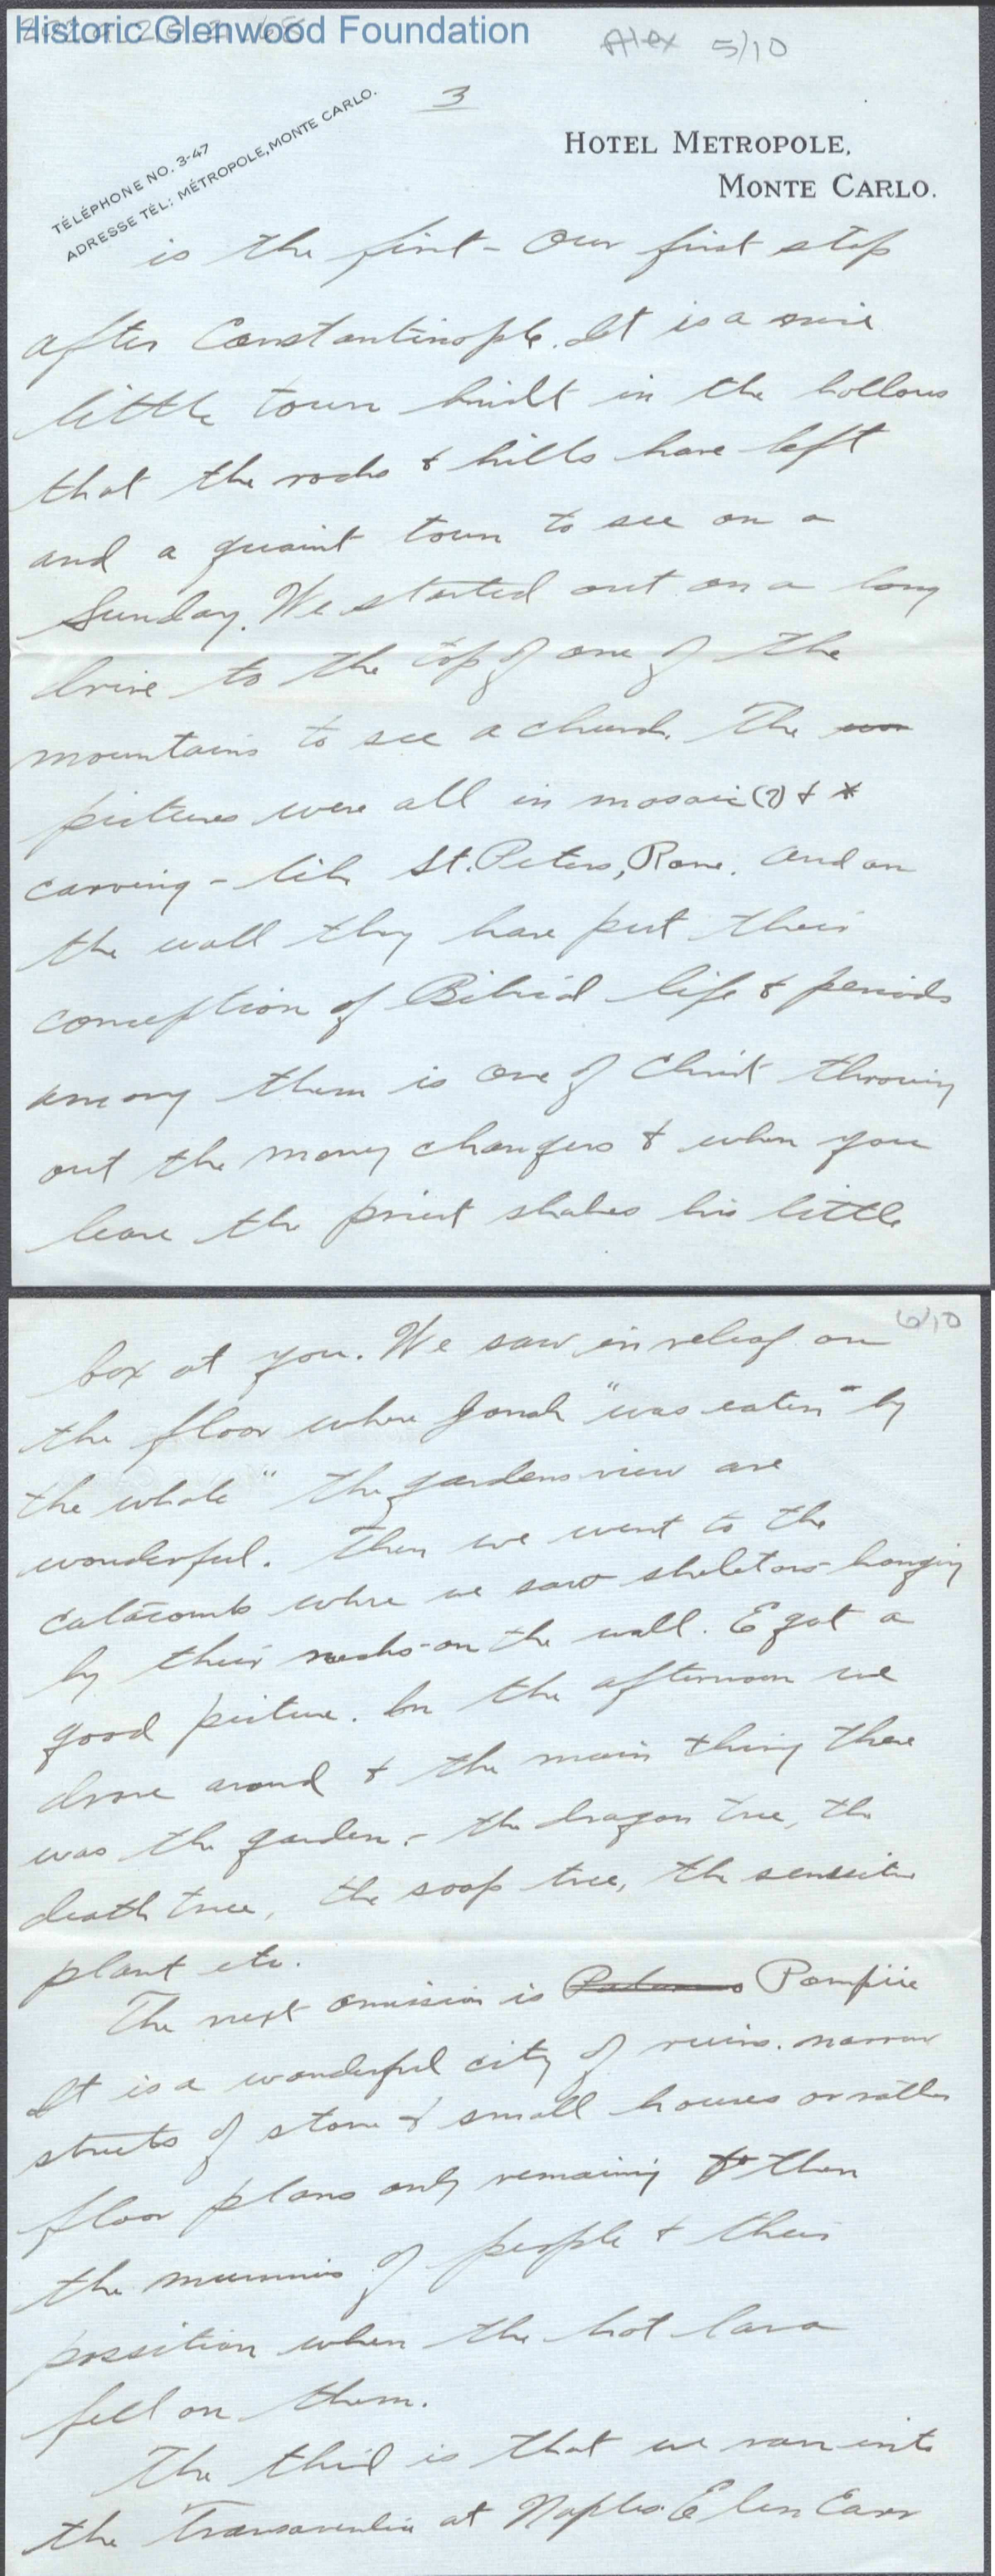 Historic Glenwood Foundation
Alex 5/10
3
TÉLÉPHONE NO. 3-47
ADRESSE TÉL: MÉTROPOLE, MONTE CARLO.
HOTEL METROPOLE,
MONTE CARLO.
is the first - Our first stop
after Constantinople. It is a nice
little town built in the hollows
that the rocks & hills have left
and a quaint town to see on a
Sunday. We started out on a long
drive to the top of one of the
mountains to see a church. The
pictures were all in mosaic (?) & *
carving - like St. Peters, Rome. and on
the wall they have put their
conception of Biblical life & periods
among them is one of Christ throwing
out the money changers & when you
leave the priest shakes his little
6/10
box at you. We saw in relief on
the floor where Jonah "was eaten" by
the whale" The gardens view are
wonderful. Then we went to the
catacomb where we saw skeletons hanging
by their necks on the wall. E got a
good picture. In the afternoon we
drove around & the main thing there
was the garden, - the dragon tree, the
death tree, the soap tree, the sensitive
plant etc.
The next omission is Pompiie
It is a wonderful city of ruins. narrow
streets of stone & small houses or rather
floor plans only remaining then
the mummies of people & their
possition when the hot lava
fell on them.
The third is that we ran into
the at Naples. Elen Carr